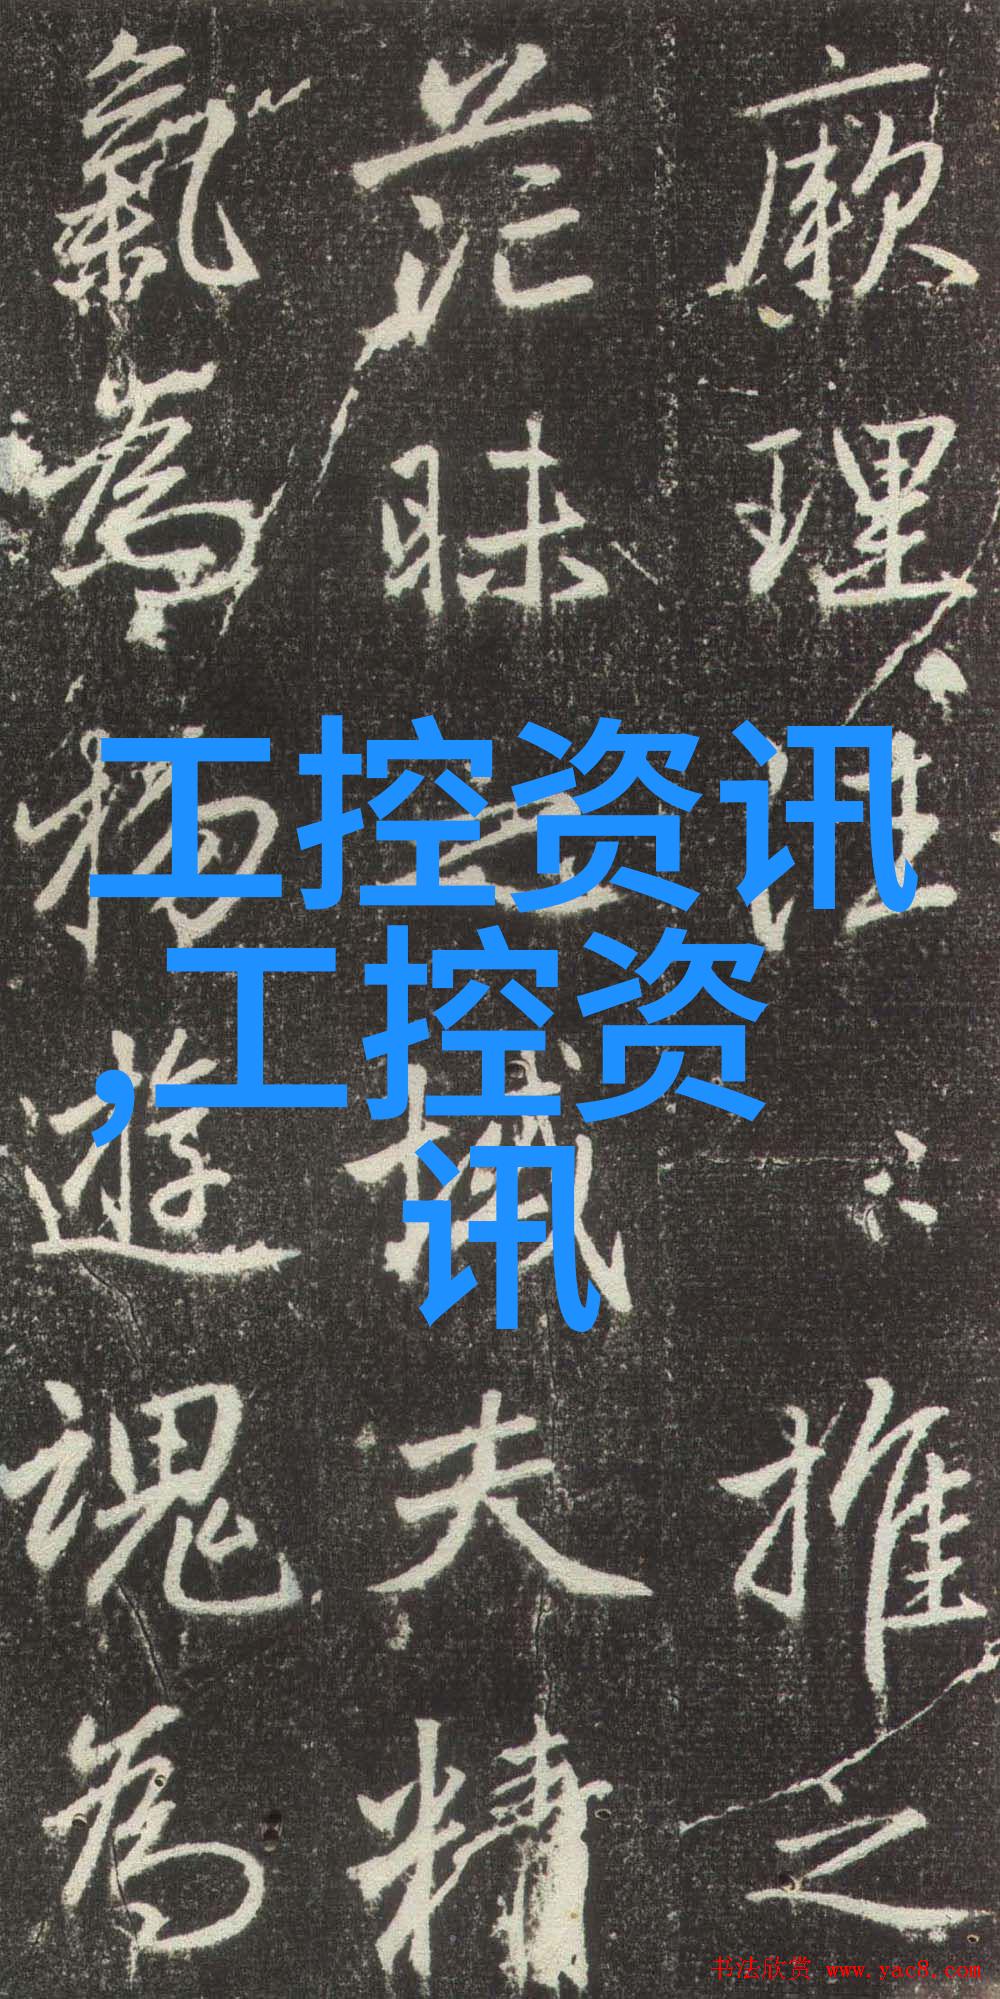 厥理推之
茫昧之夫精
氣為物遊魂為
工控资讯
,工控资
讯
书法欣赏 www.yac8.com